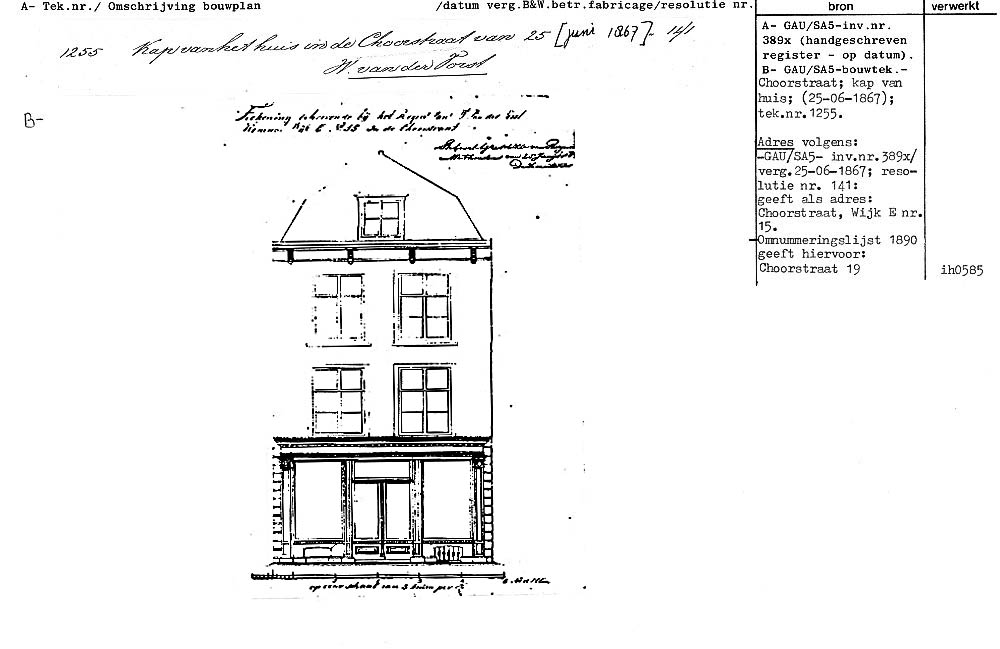 A- Tek.nr./ Omschrijving bouwplan /datum verg.B&W.betr.fabricage/resolutie nr.
bron
verwerkt
1255 Kap van het huis in de Choorstraat van 25 [juni 1867]- 141
W. van der Voort
B-
Teekening behoorende bij het
Wijk E. No 15 in de Choorstraat
op eene schaal van 3 duim per
A- GAU/SA5-inv.nr.
389x (handgeschreven
register - op datum).
B- GAU/SA5-bouwtek.-
Choorstraat; kap van
huis; (25-06-1867);
tek.nr.1255.
Adres volgens:
-GAU/SA5- inv.nr.389x/
verg.25-06-1867; reso-
lutie nr. 141:
geeft als adres:
Choorstraat, Wijk E nr.
15.
-Omnummeringslijst 1890
geeft hiervoor:
Choorstraat 19
ih0585